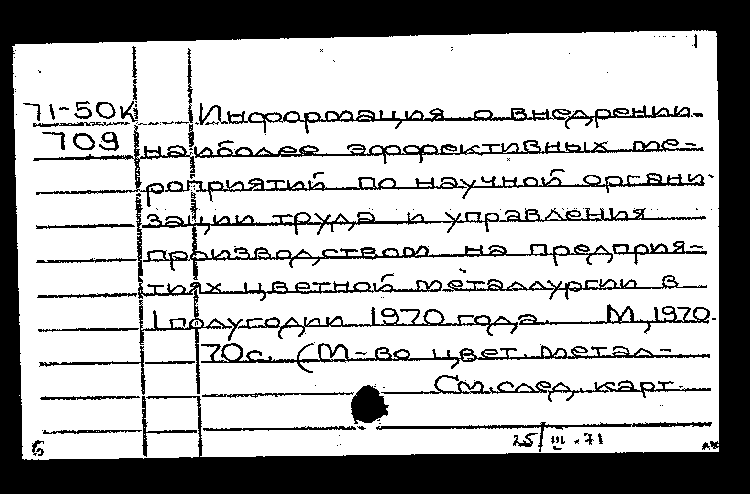 71-50к Информация о внедрении
709 наиболее эффективных ме-
роприятий по научной органи-
зации труда и управления
производством на предприя-
тиях цветной металлургии в
I полугодии 1970 года. М, 1970.
70с. (М-во цвет. метал-
См. след. карт.
25/III-71